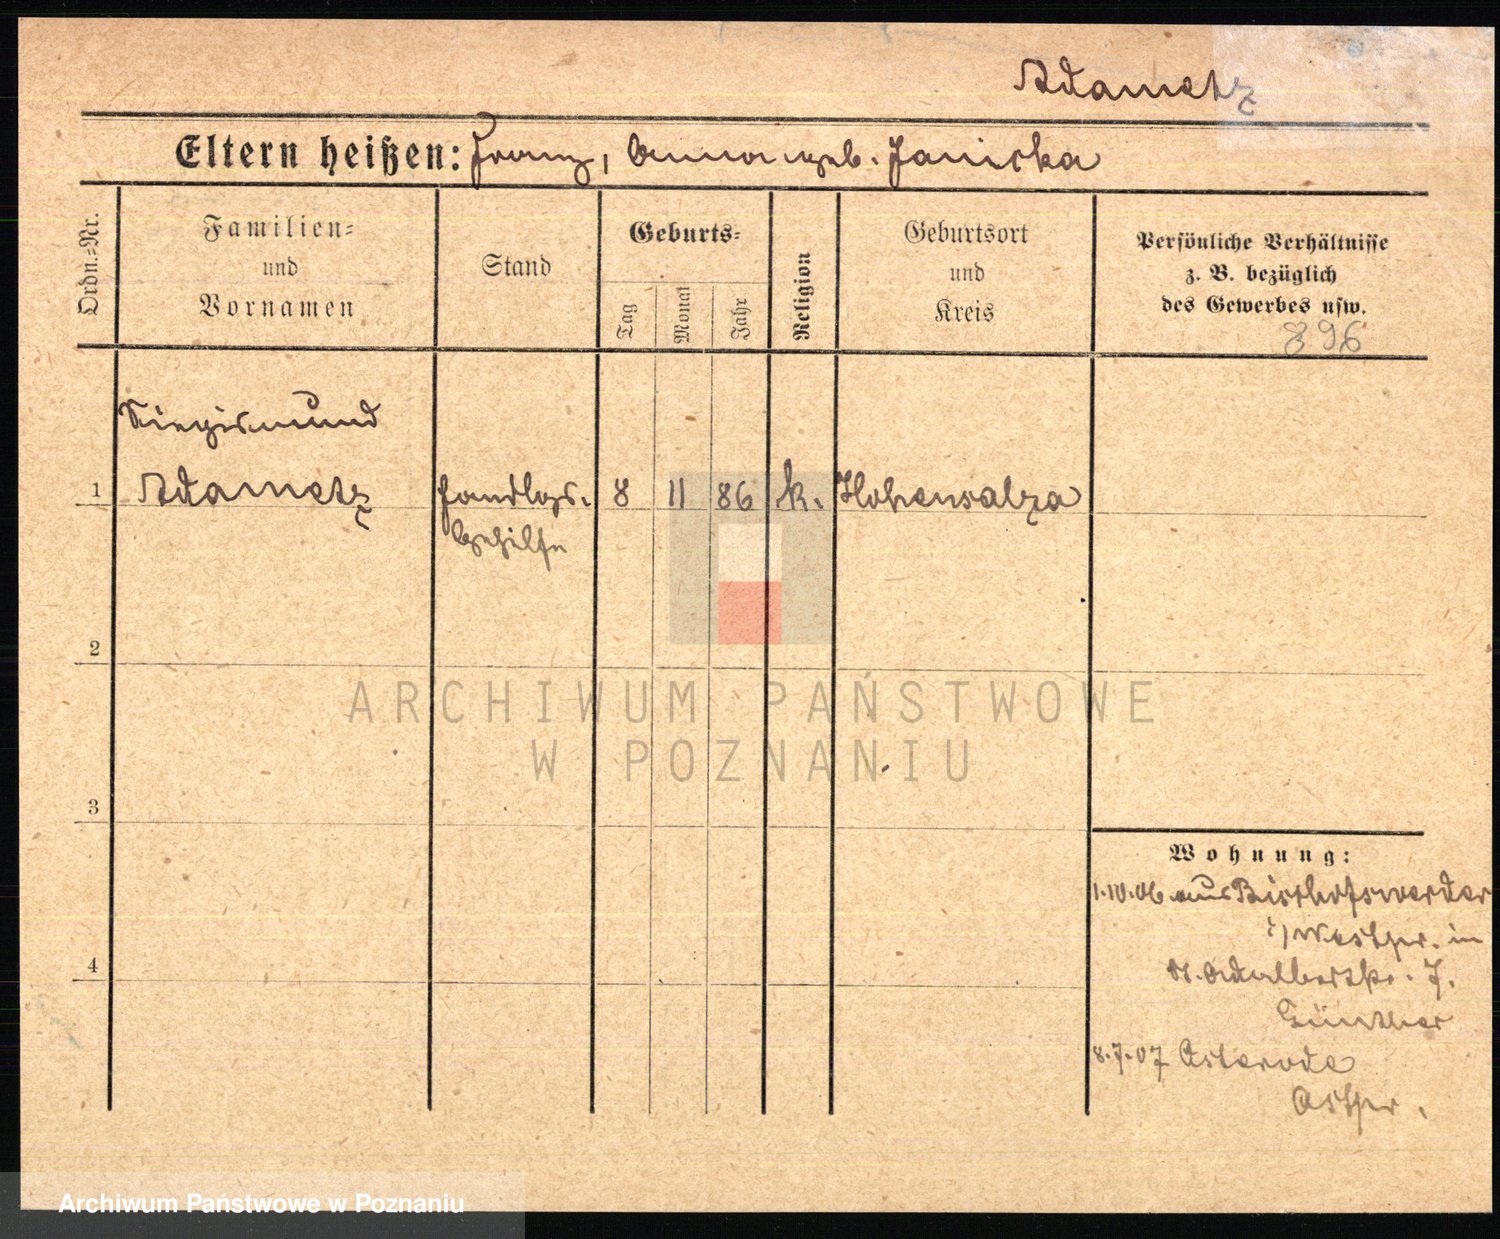 Adametz
Eltern heißen: Franz, Anna geb. Janicka
Ordn.=Nr.
Familien=
und
Vornamen
Stand
Geburts=
Tag
Monat
Jahr
Religion
Geburtsort
und
Kreis
Persönliche Verhältnisse
z. B. bezüglich
des Gewerbes usw.
896
Siegismund
1 Adametz Handlgs. 8 11 86 k. Hohensalza
Gehilfe
2
3
4
Wohnung:
1.10.06 aus Bischofswerder
i/Westpr. in
St. Adalbertstr. 7.
Günther
8.7.07 Osterode
Ostpr.
ARCHIWUM PAŃSTWOWE
W POZNANIU
Archiwum Państwowe w Poznaniu